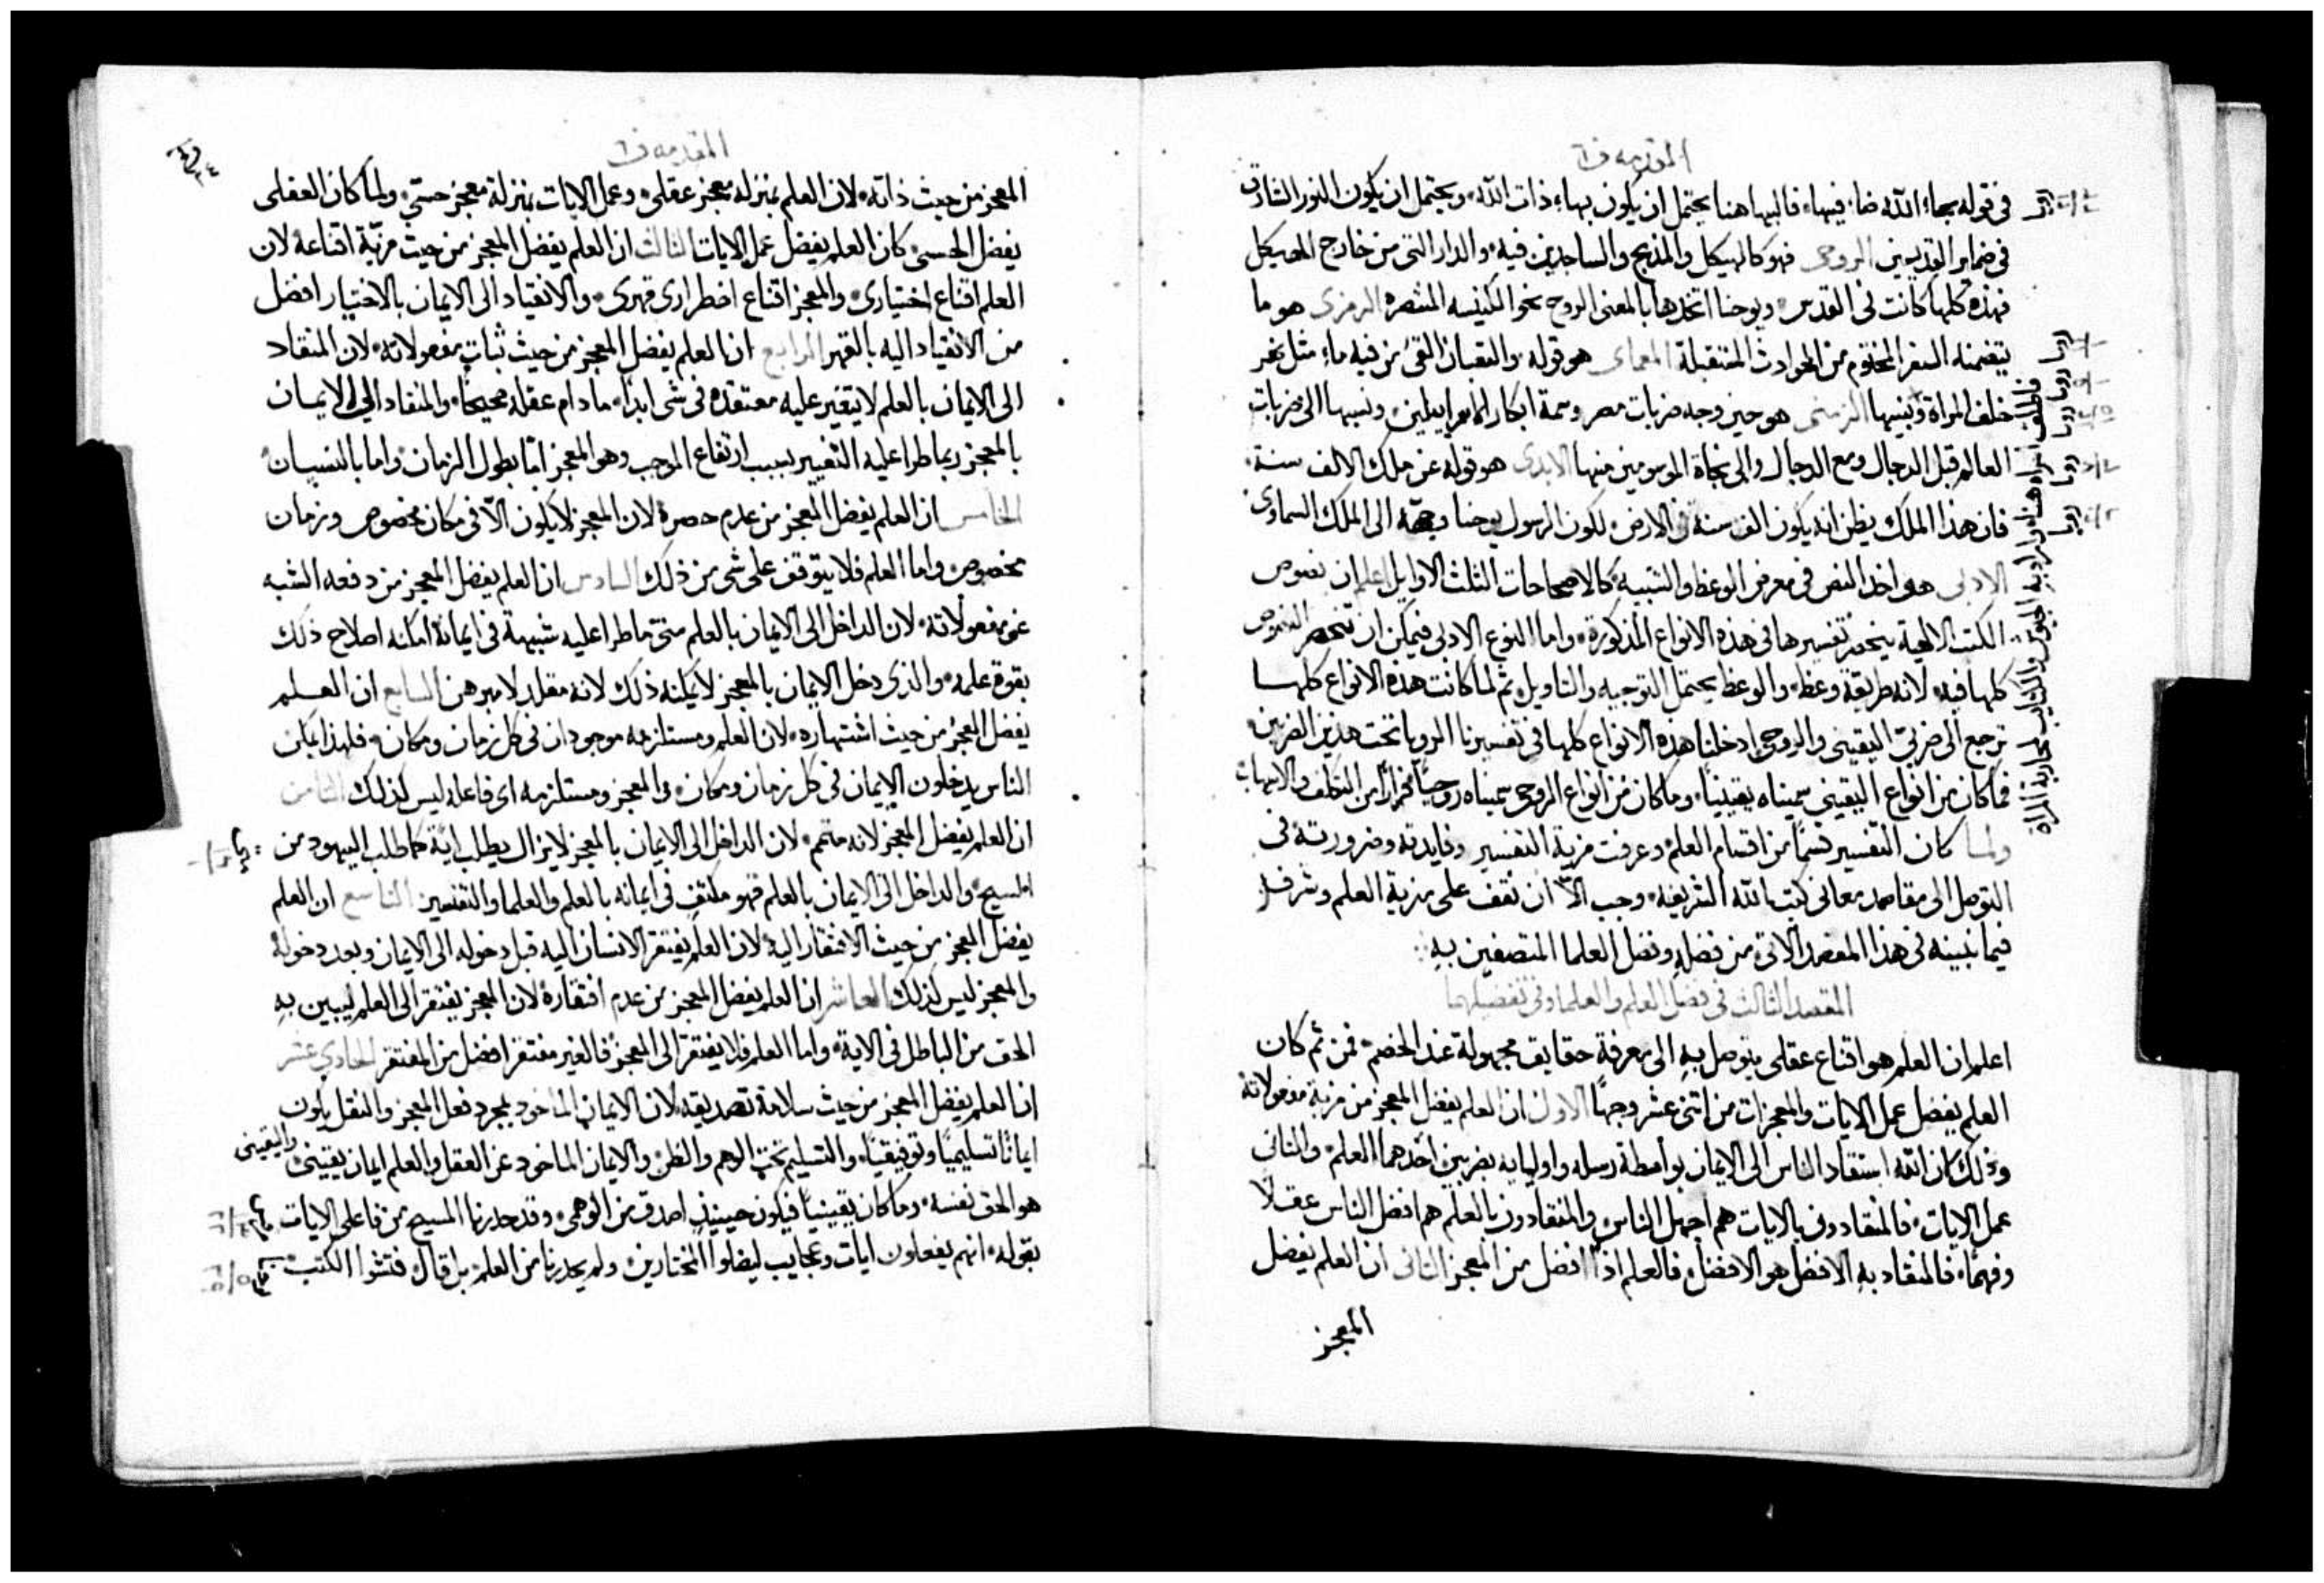 المقدمه ف٦
في قوله بهاء الله ضا فيها، فالبها هنا يحتمل ان يكون بهاء ذات الله، ويحتمل ان يكون النور الشارق
في ضماير القديسين الروحي فهو كالهيكل والمذبح والساجدين فيه، والدار التي من خارج الهيكل
فهذه كلها كانت في القدس، ويوحنا اتخذها بالمعنى الروحي نحو الكنيسه المنتصره الرمزي هو ما
يتضمنه السفر المختوم من الحوادث المستقبلة المعماى هو قوله، والثعبان القي من فيه ماء مثل نهر
خلف المراة وبنيها الزمني هو حين وجه ضربات مصر وسمة ابكار الاسراييلين، ونسبها الى ضربات
العالم قبل الدجال ومع الدجال والى نجاة الموسومين منها الابدى هو قوله عن ملك الالف سنة،
فان هذا الملك يظن انه يكون الف سنة في الارض، لكون الرسول يوحنا وجهه الى الملك السماوى
الادبى هو اخذ النص في معرض الوعظ والتشبيه، كالاصحاحات الثلث الاوايل اعلم ان نصوص
الكتب الالهية ينحصر تفسيرها في هذه الانواع المذكورة، واما النوع الادبى فيمكن ان تنحصر النصوص
كلها فيه، لانه طريقة وعظ، والوعظ يحتمل التوجيه والتاويل، ثم لما كانت هذه الانواع كلها
ترجع الى ضربي اليقيني والروحي، ادخلنا هذه الانواع كلها في تفسيرنا الرويا تحت هذين الضربين
فما كان من انواع اليقيني سميناه يقينيا، وما كان من انواع الروحي سميناه روحيا فرارا من التكلف والابهام
ولما كان التفسير قسما من اقسام العلم، وعرفت مزية التفسير وفايدته وضرورته في
التوصل الى مقاصد معاني كتب الله الشريفه، وجب الآن ان نقف على مزية العلم وشرفه
فيما نبينه في هذا المقصد الاتي من فضله وفضل العلما المتصفين به
المقصد الثالث في فضل العلم والعلما وفي تفضيلهما
اعلم ان العلم هو اقناع عقلي يتوصل به الى معرفة حقايق مجهولة عند الخصم، فمن ثم كان
العلم يفضل عمل الايات والمعجزات من اثني عشر وجها الاول ان العلم يفضل المعجز من مزية مفعولاته
وذلك ان الله استقاد الناس الى الايمان بواسطة رسله واوليايه بضربين احدهما العلم، والثاني
عمل الايات، فالمنقادون بالايات هم اجهل الناس، والمنقادون بالعلم هم افضل الناس عقلا
وفهما، فالمنقاد به الافضل هو الافضل، فالعلم اذا افضل من المعجز الثاني ان العلم يفضل
المعجز
فاطلق المراه هنا واراد به
المقدمه ف٦
المعجز من حيث ذاته، لان العلم بمنزله معجز عقلي، وعمل الايات بمنزلة معجز حسي، ولما كان العقلي
يفضل الحسي، كان العلم يفضل عمل الايات الثالث ان العلم يفضل المعجز من حيث مزية اقناعه، لان
العلم اقناع اختياري، والمعجز اقناع اضطراري قهري، والانقياد الى الايمان بالاختيار افضل
من الانقياد اليه بالقهر الرابع ان العلم يفضل المعجز من حيث ثبات مفعولاته، لان المنقاد
الى الايمان بالعلم لا يتغير عليه معتقده في شي ابدا، ما دام عقله صحيحا، والمنقاد الى الايمان
بالمعجز ربما طرا عليه التغيير بسبب ارتفاع الموجب وهو المعجز، اما بطول الزمان، واما بالنسيان،
الخامس ان العلم يفضل المعجز من عدم حصره، لان المعجز لا يكون الا في مكان مخصوص وزمان
مخصوص، واما العلم فلا يتوقف على شي من ذلك السادس ان العلم يفضل المعجز من دفعه الشبه
عن مفعولاته، لان الداخل الى الايمان بالعلم متى ما طرا عليه شبهة في ايمانه امكنه اصلاح ذلك
بقوة علمه، والذي دخل الايمان بالمعجز لا يمكنه ذلك لانه مقلد لا مبرهن السابع ان العلم
يفضل المعجز من حيث اشتهاره، لان العلم ومستلزمه موجودان في كل زمان ومكان، فلهذا يمكن
الناس يدخلون الايمان في كل زمان ومكان، والمعجز ومستلزمه اي فاعله ليس كذلك الثامن
ان العلم يفضل المعجز لانه متمم، لان الداخل الى الايمان بالمعجز لا يزال يطلب اية كما طلب اليهود من
المسيح، والداخل الى الايمان بالعلم فهو مكتف في ايمانه بالعلم والعلما والتفسير التاسع ان العلم
يفضل المعجز من حيث الافتقار اليه، لان العلم يفتقر الانسان اليه قبل دخوله الى الايمان وبعد دخوله
والمعجز ليس كذلك العاشر ان العلم يفضل المعجز من عدم افتقاره، لان المعجز يفتقر الى العلم ليبين به
الحق من الباطل في الاية، واما العلم فلا يفتقر الى المعجز، فالغير مفتقر افضل من المفتقر الحادي عشر
ان العلم يفضل المعجز من حيث سلامة تصديقه، لان الايمان الماخود بمجرد فعل المعجز والنقل يكون
ايمانا تسليميا وتوفيقيا، والتسليم تحت الوهم والظن، والايمان الماخود عن العقل والعلم ايمان يقيني، واليقيني
هو الحق نفسه، وما كان يقينيا فيكون حينيذ اصدق من الوهمي، وقد حذرنا المسيح من فاعلي الايات
بقوله، انهم يفعلون ايات وعجايب ليضلوا المختارين، ولم يحذرنا من العلم، بل قال، فتشوا الكتب